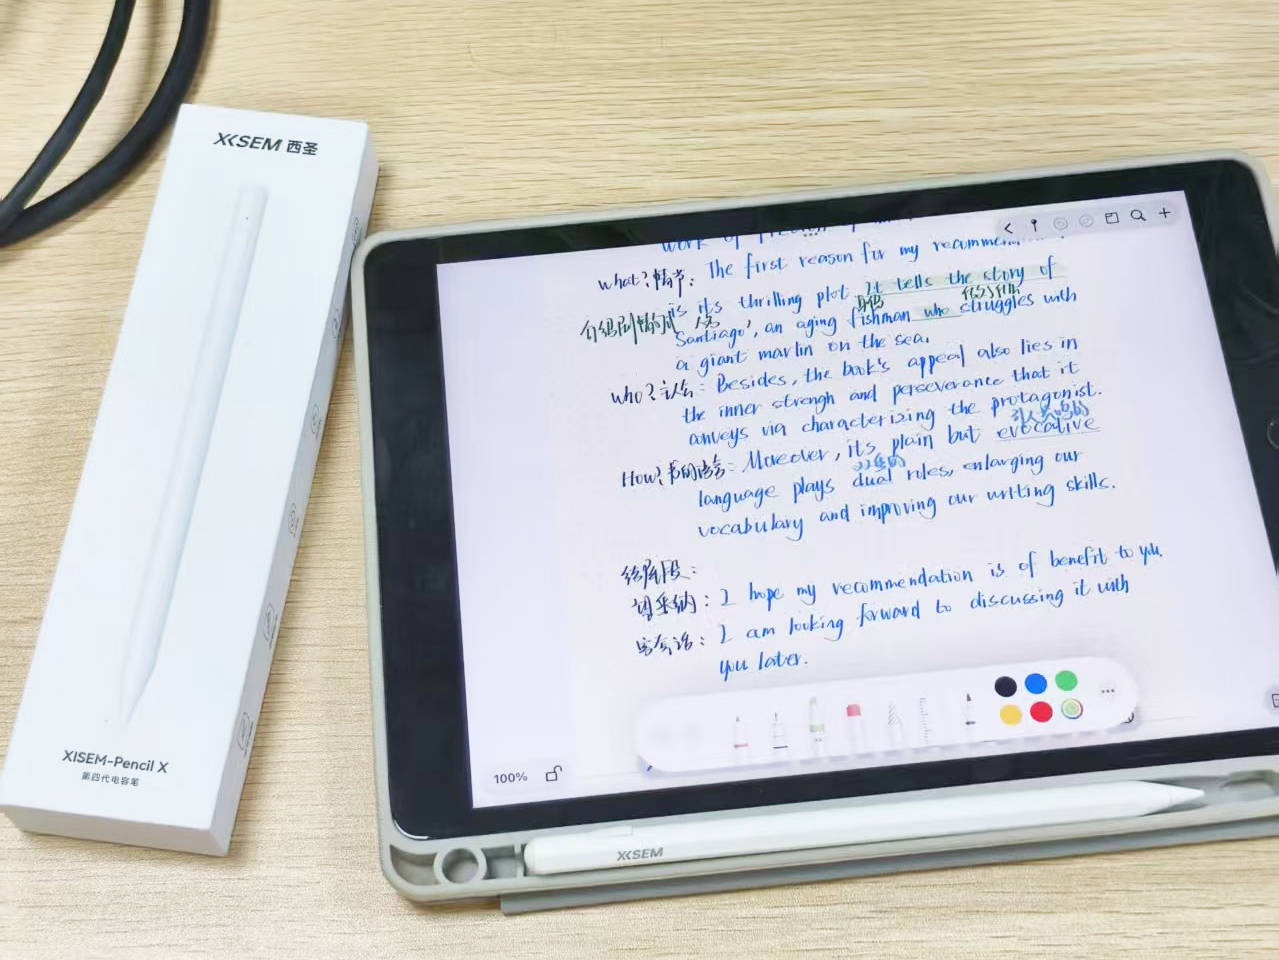 XISEM 西圣
XISEM-Pencil X
第四代电容笔
work of
what?情节: The first reason for my
is its thrilling plot. It tells the story of
介绍剧情
Santiago', an aging fishman who struggles with
a giant marlin on the sea.
who?主人公: Besides, the book's appeal also lies in
the inner strengh and perseverance that it
conveys via characterizing the protagonist.
引人共鸣的
How?书的语言: Moreover, its plain but evocative
双重的
language plays dual roles, enlarging our
vocabulary and improving our writing skills.
结尾段:
望采纳: I hope my recommendation is of benefit to you.
客套话: I am looking forward to discussing it with
you later.
100%
XISEM